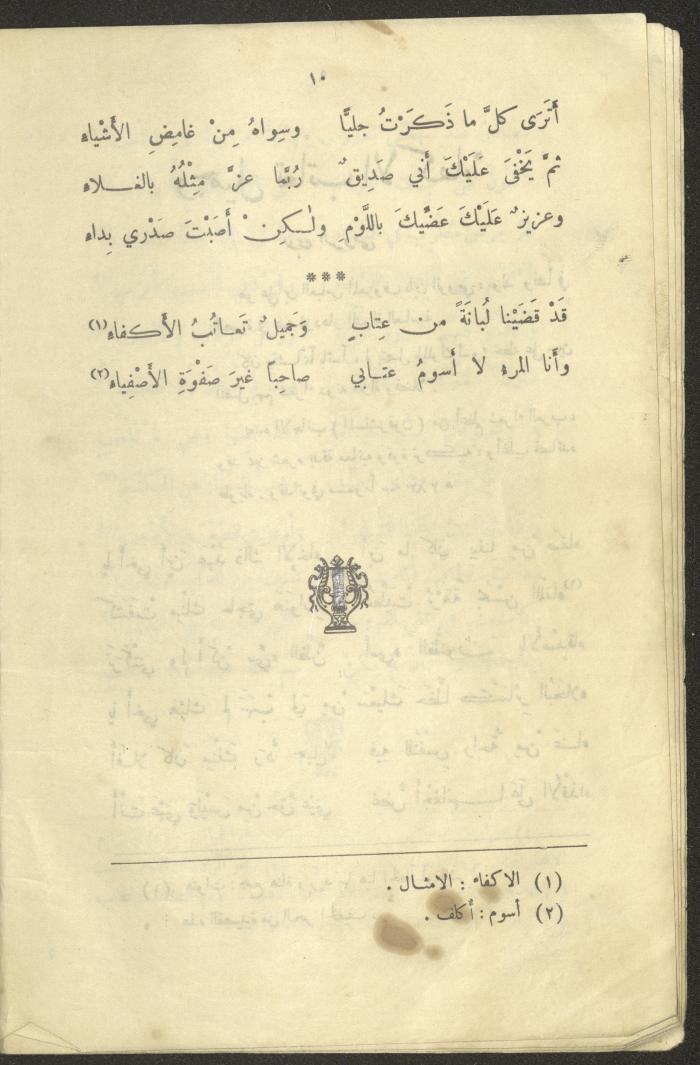 ١٠
أَتَرَى كلَّ ما ذَكَرْتُ جليًّا وسِواهُ مِنْ غامِضِ الأَشْياء
ثمَّ يَخْفىَ عَلَيْكَ أَني صَدِيقٌ رُبَّما عزَّ مِثْلُهُ بالغلاء
وعزيزٌ عَلَيْكَ عَضِّيكَ باللَّوْمِ ولٰكِنْ أَصَبْتَ صَدْري بِداء
***
قَدْ قَضَيْنا لُبانَةً من عِتِابٍ وَجَميلٌ تَعاتُبُ الأَكفاء(١)
وأَنا المرء لا أَسومُ عتابي صاحِباً غيرَ صَفْوَةِ الأَصْفِياء(٢)
(١) الاكفاء : الامثال .
(٢) أسوم : أكلف .